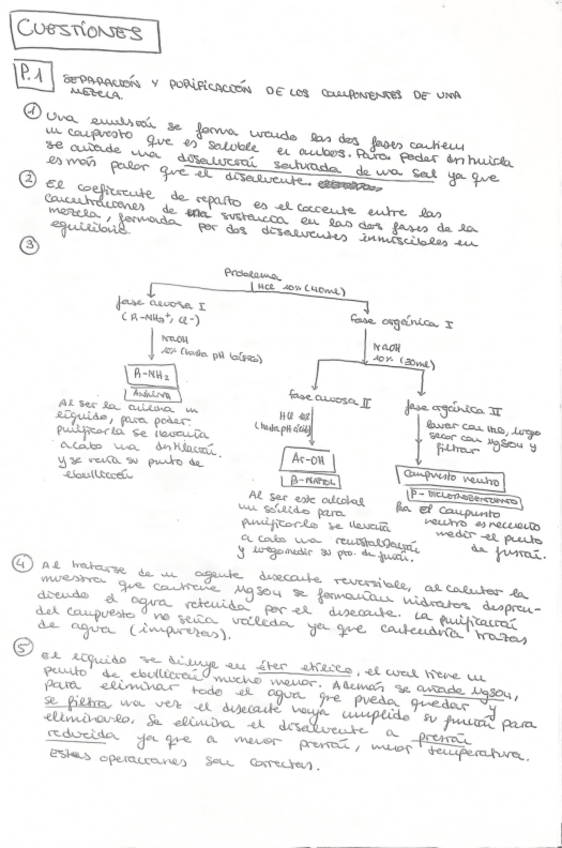 CUESTIONES
P.1 SEPARACIÓN Y PURIFICACIÓN DE LOS COMPONENTES DE UNA
MEZCLA.
① Una emulsión se forma cuando las dos fases contienen
un compuesto que es soluble en ambos. Para poder destruirla
se añade una disolución saturada de una sal ya que
es más polar que el disolvente.
② El coeficiente de reparto es el cociente entre las
concentraciones de una sustancia en las dos fases de la
mezcla, formada por dos disolventes inmiscibles en
equilibrio.
③
Problema
HCl 10% (40ml)
fase acuosa I
(R-NH3+, Cl-)
fase orgánica I
NaOH
10% (hasta pH básico)
NaOH
10% (30ml)
R-NH2
ANILINA
fase acuosa II
fase orgánica II
Al ser la anilina un
líquido, para poder
purificarla se llevaría
a cabo una destilación.
y se vería su punto de
ebullición
HCl
(hasta pH ácido)
lavar con H2O, luego
secar con MgSO4 y
filtrar
Ar-OH
β-NAFTOL
compuesto neutro
P-DICLOROBENCENO
Al ser este alcohol
un sólido para
purificarlo se llevaría
a cabo una recristalización
y luego medir su pto. de fusión.
El compuesto
neutro es necesario
medir el punto
de fusión.
④ Al tratarse de un agente desecante reversible, al calentar la
muestra que contiene MgSO4 se formarían hidratos despren-
diendo el agua retenida por el desecante. La purificación
del compuesto no sería válida ya que contendría trazas
de agua (impurezas).
⑤ El líquido se diluye en éter etílico, el cual tiene un
punto de ebullición mucho menor. Además se añade MgSO4,
para eliminar todo el agua que pueda quedar y
se filtra una vez el desecante haya cumplido su función para
eliminarlo. Se elimina el disolvente a presión
reducida ya que a menor presión, menor temperatura.
Estas operaciones son correctas.